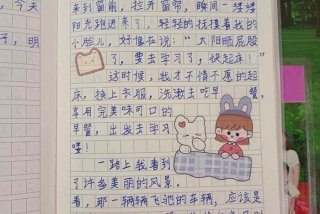 今天
子，明
来到窗前，拉开窗帘，瞬间一缕缕
阳光跑进来了，轻轻的抚摸着我的
小脸儿，好像在说：“太阳晒屁股
了，要去学习了，快起床！”
这时候，我才不情不愿的起
床，换上衣服，洗漱去吃早餐，
享用完美味可口的
早餐，出发去学习
喽！
一路上我看到
了许多美丽的风景。
看，那一辆辆飞驰的车辆，应该是